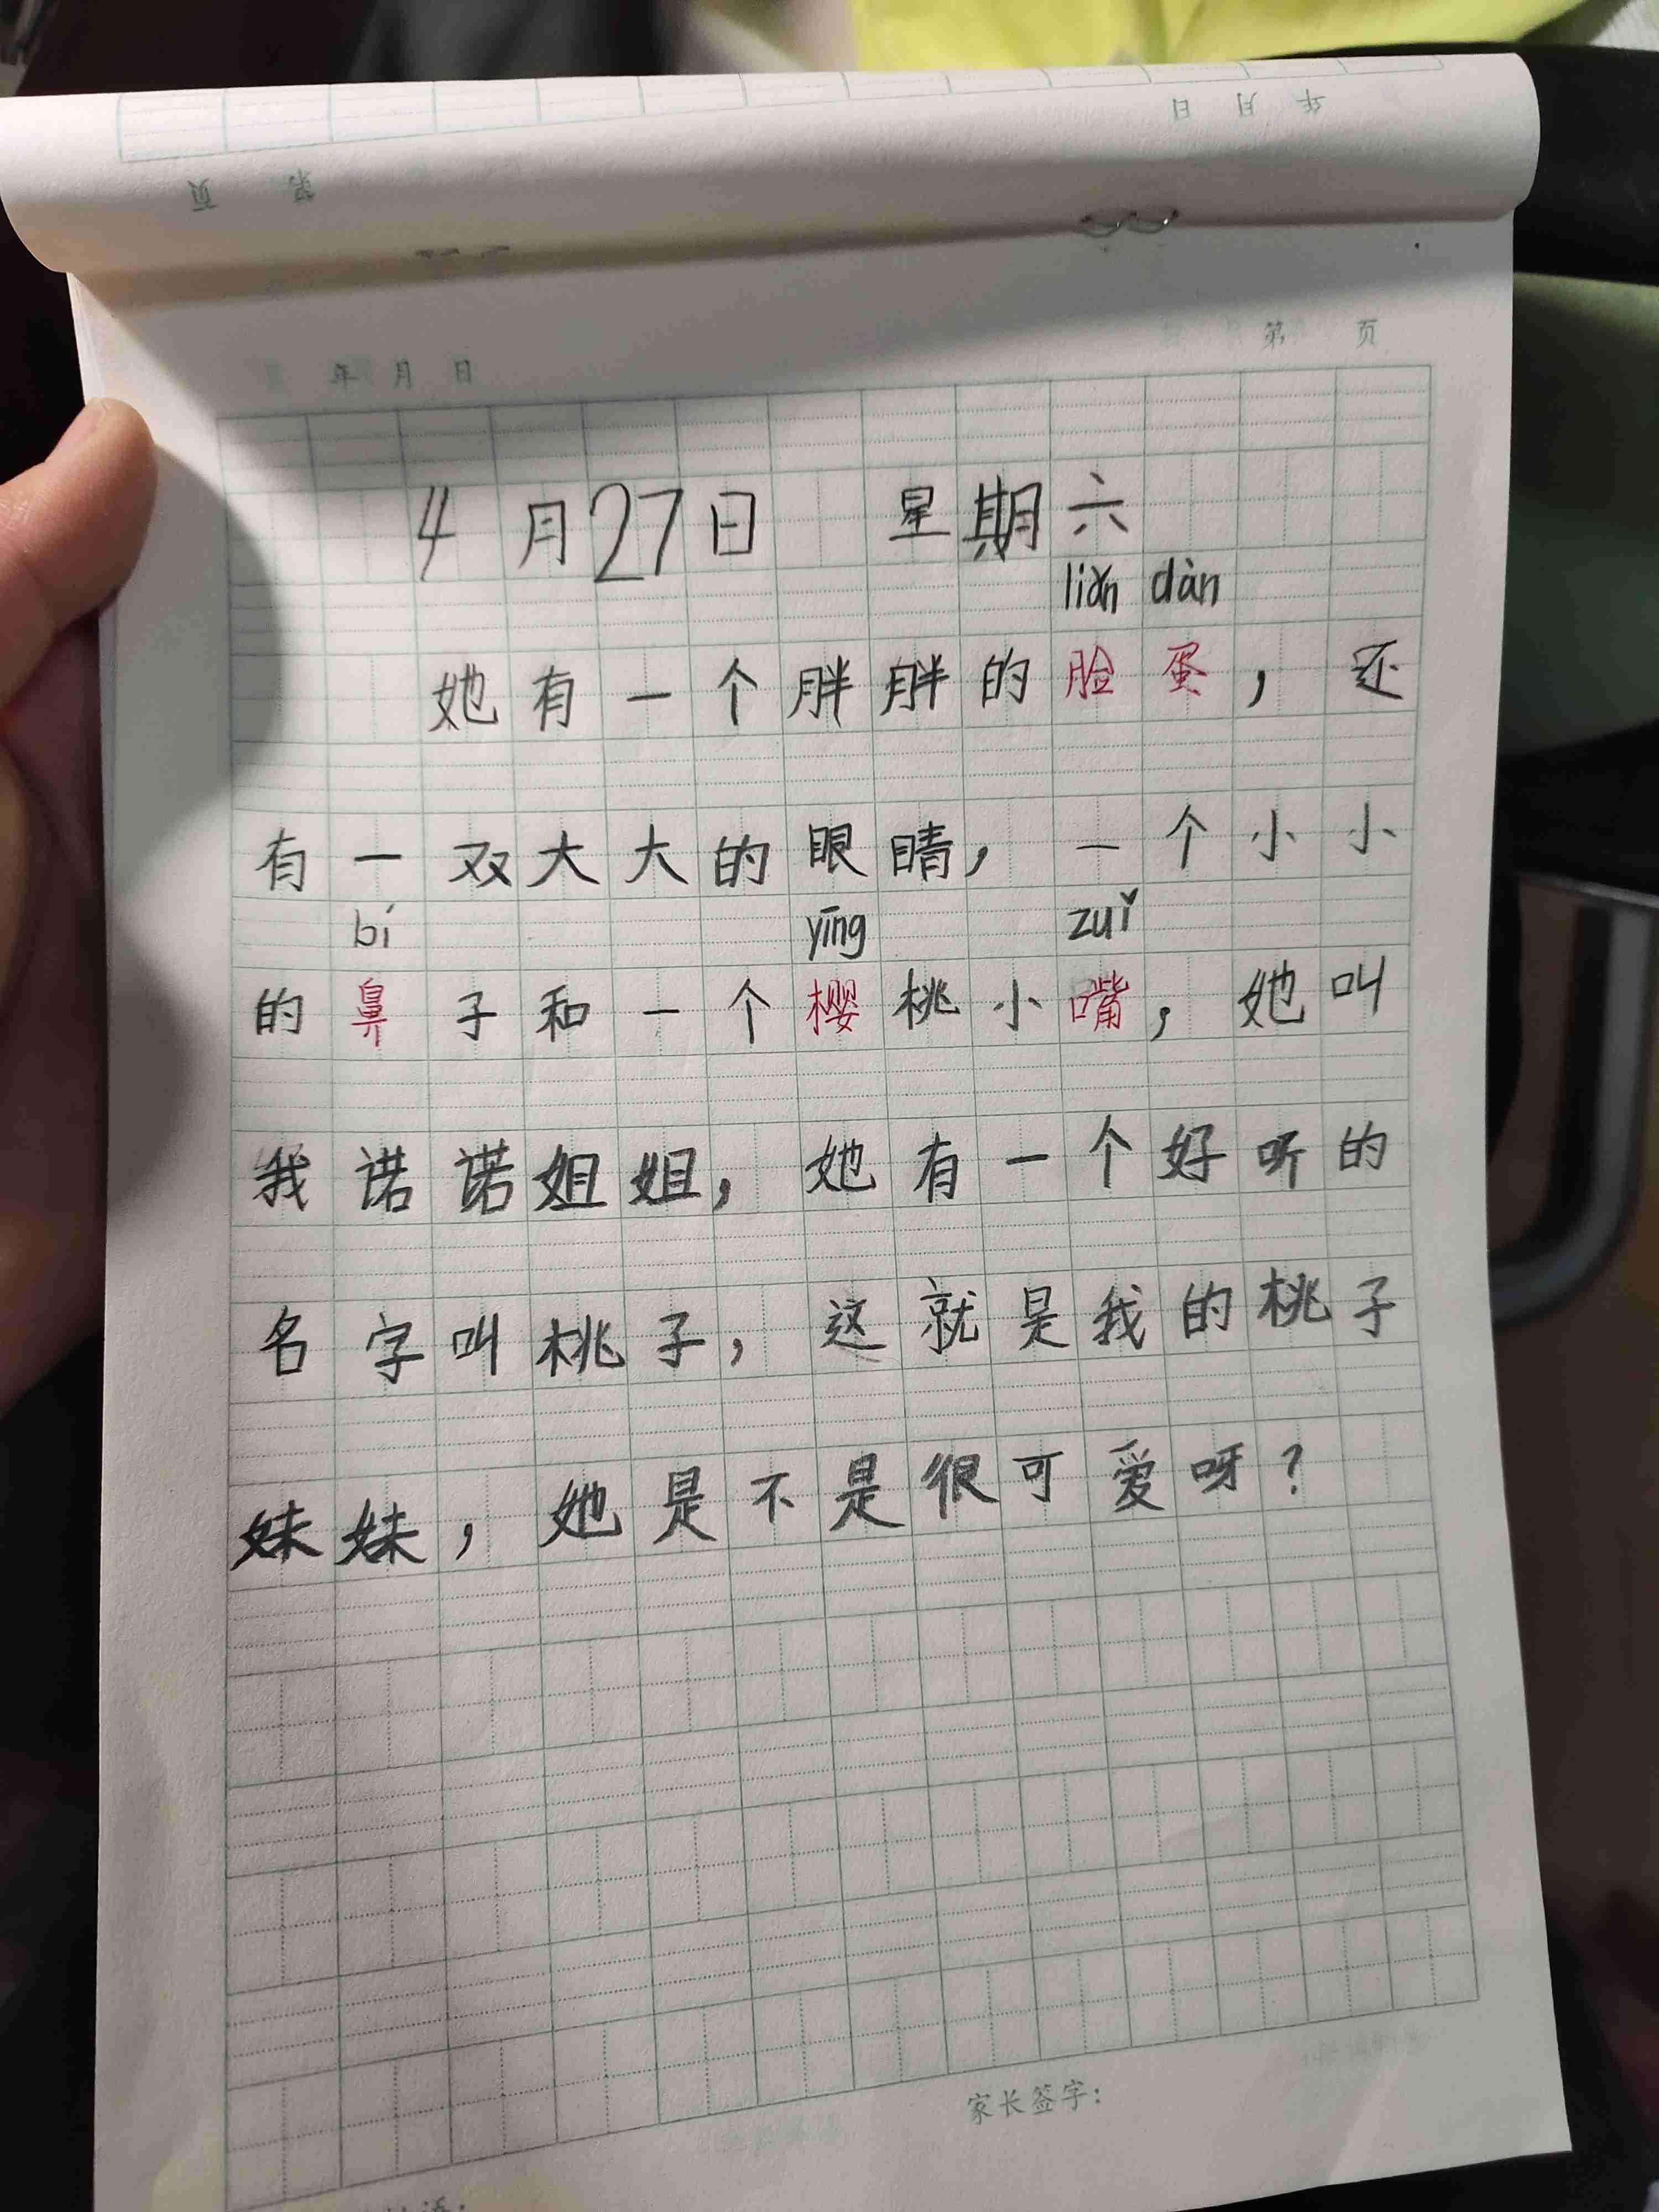 年 月 日
页 第
年 月 日 第 页
4月27日 星期六
liǎn dàn
她有一个胖胖的脸蛋，还
有一双大大的眼睛，一个小小
bí yīng zuǐ
的鼻子和一个樱桃小嘴，她叫
我诺诺姐姐，她有一个好听的
名字叫桃子，这就是我的桃子
妹妹，她是不是很可爱呀？
家长签字：